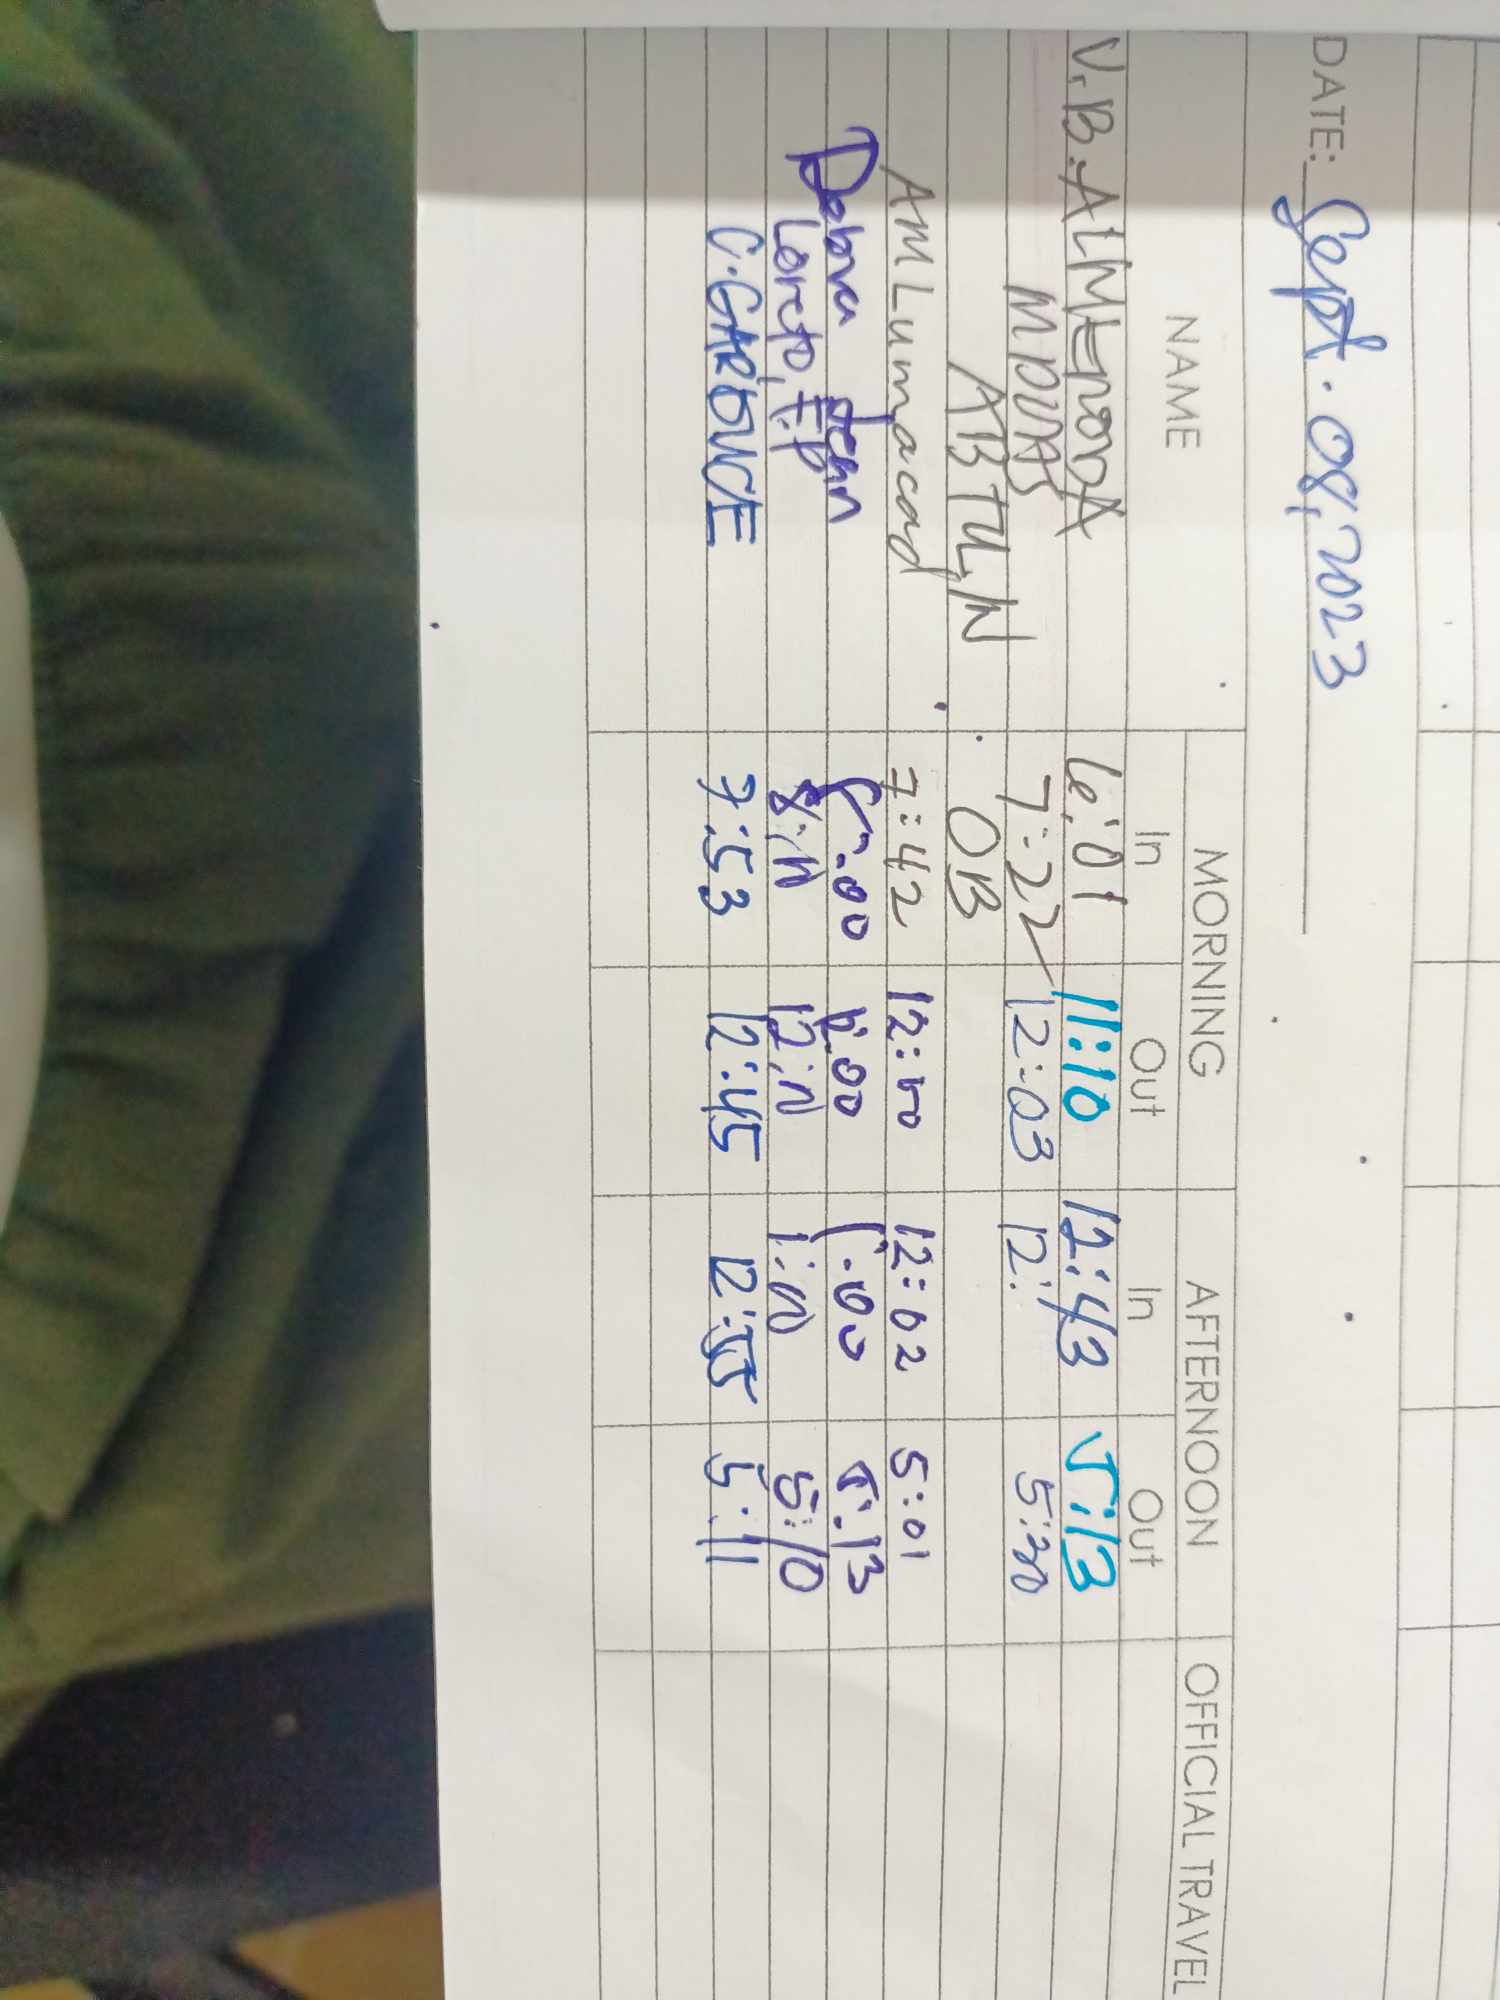 DATE: Sept. 08, 2023
NAME MORNING AFTERNOON OFFICIAL TRAVEL
In Out In Out
V.B. ALMENDRA 6:01 11:10 12:43 5:13
7:22 12:03 12: 5:30
ABTU, N OB
AM Lumacad 7:42 12:00 12:02 5:01
Debra Jean 8:00 12:00 1:00 5:13
Loreto, F.P 8:N 12:N 1:N 5:10
C. GARDUCE 7:53 12:45 12:55 5:11